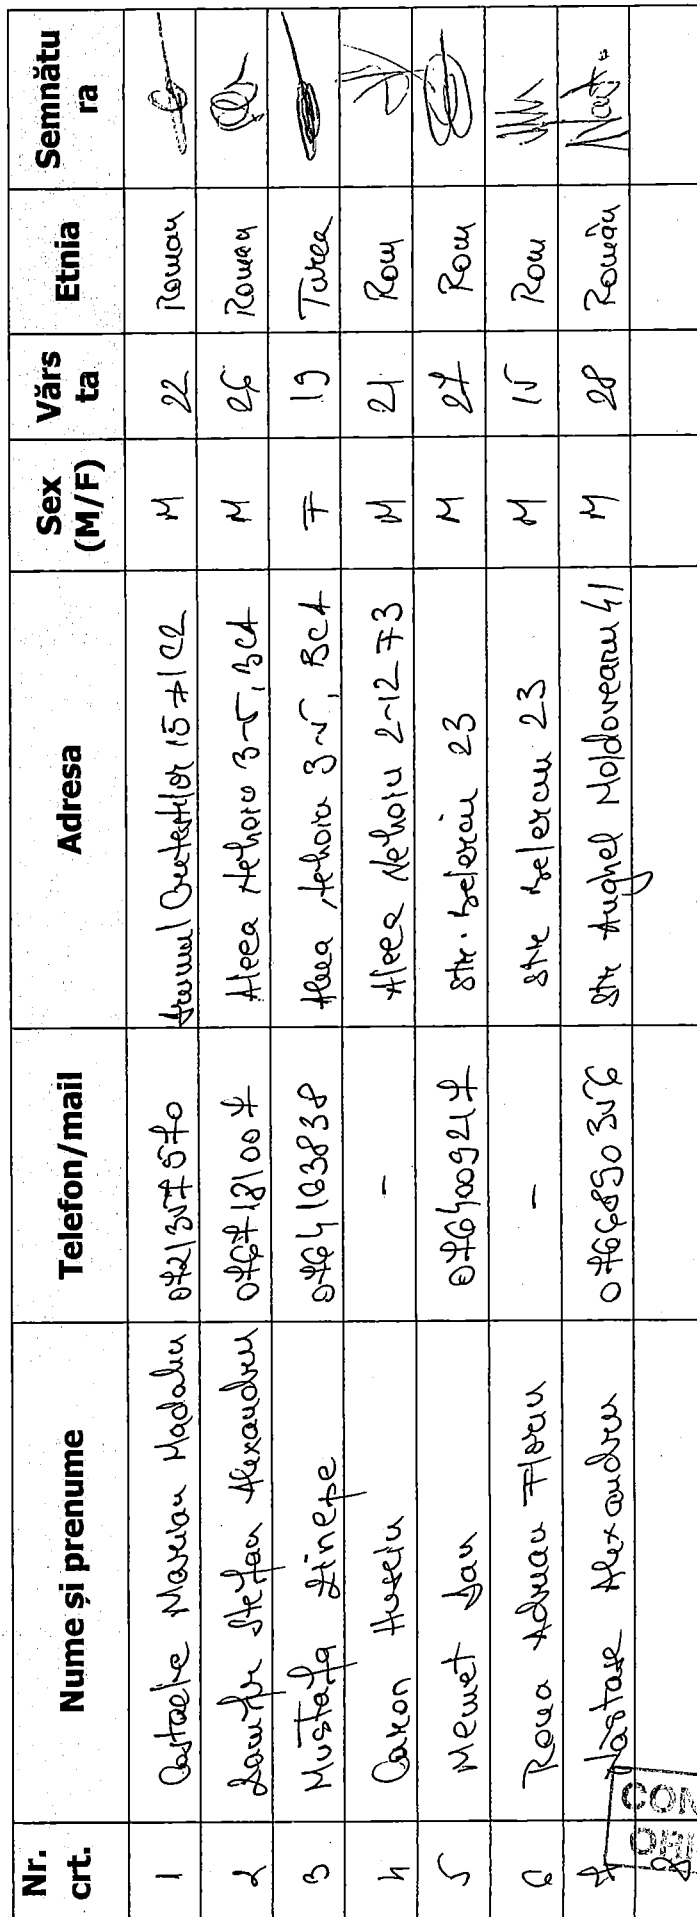 Nr. crt. Nume și prenume Telefon/mail Adresa Sex (M/F) Vârs ta Etnia Semnătu ra
1 Costache Marian Madalin 0721357570 15 A1 C2 M 22 Roman
2 Stefan Alexandru 0767181007 Aleea Nehoiu 3-5, BC1 M 26 Roman
3 Mustafa Zinepe 0764163838 Aleea Nehoiu 3-5, BC1 F 19 Turca
4 Husein - Aleea Nehoiu 2-12 F3 M 21 Rom
5 Memet Dan 0764009217 Str. 23 M 27 Rom
6 Adrian Florin - Str 23 M 15 Rom
7 Năstase Alexandru 0766890356 Str Anghel Moldoveanu 41 M 28 Român
8